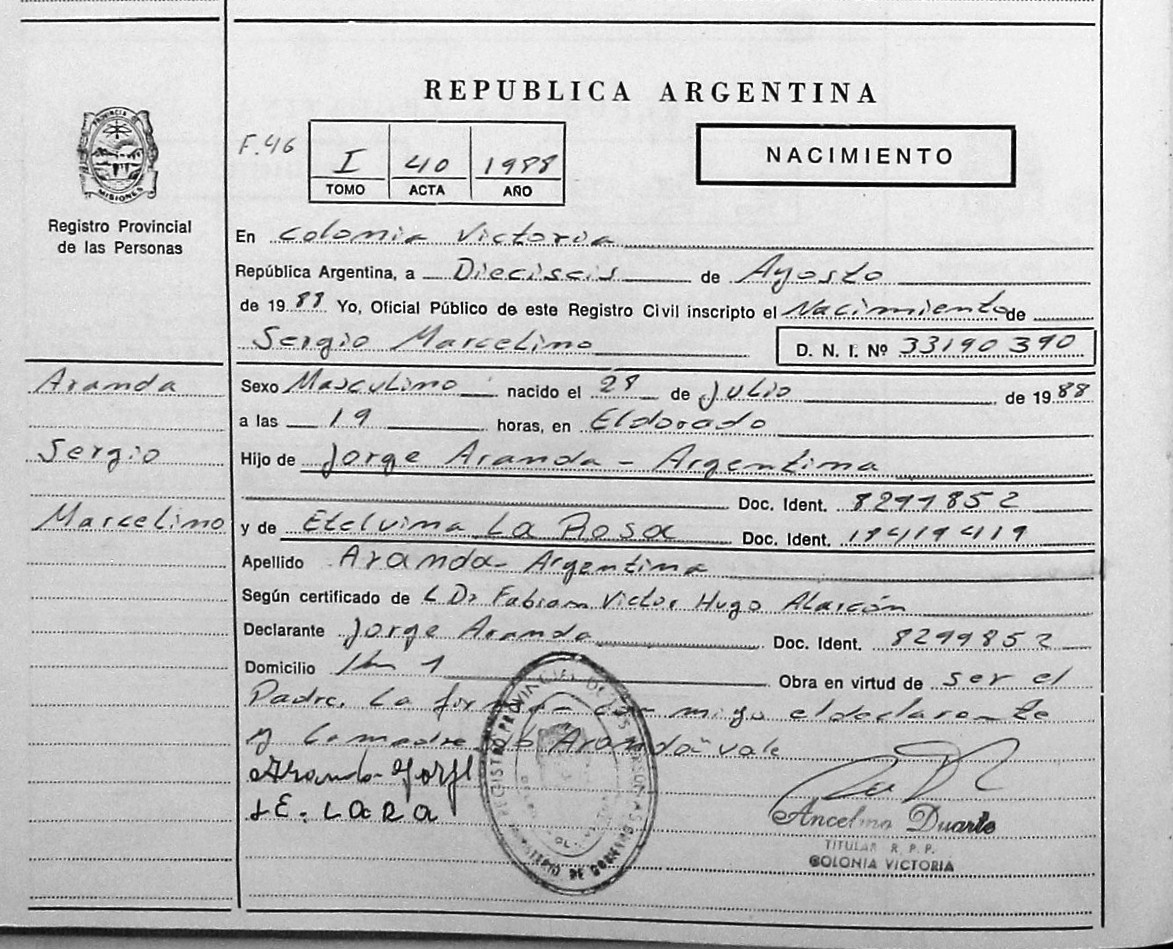 REPUBLICA ARGENTINA
F.46
I 40 1988
TOMO ACTA AÑO
NACIMIENTO
PROVINCIA DE MISIONES
Registro Provincial
de las Personas
En Colonia Victoria
República Argentina, a Dieciseis de Agosto
de 1988 Yo, Oficial Público de este Registro Civil inscripto el Nacimiento de
Sergio Marcelino D. N. I. Nº 33190390
Aranda
Sergio
Marcelino
Sexo Masculino nacido el 28 de Julio de 1988
a las 19 horas, en Eldorado
Hijo de Jorge Aranda - Argentina
Doc. Ident.
y de Etelvina La Rosa Doc. Ident. 18419419
Apellido Aranda - Argentina
Según certificado de L Dr Fabian Victor Hugo Alarcón
Declarante Jorge Aranda Doc. Ident. 8299852
Domicilio Km 1 Obra en virtud de ser el
Padre. La firman conmigo el declarante
y la madre. Aranda vale
Aranda Jorge
LE. LARA
Ancelmo Duarte
TITULAR R. P. P.
COLONIA VICTORIA
REGISTRO PROVINCIAL DE LAS PERSONAS
MINISTERIO DE GOBIERNO